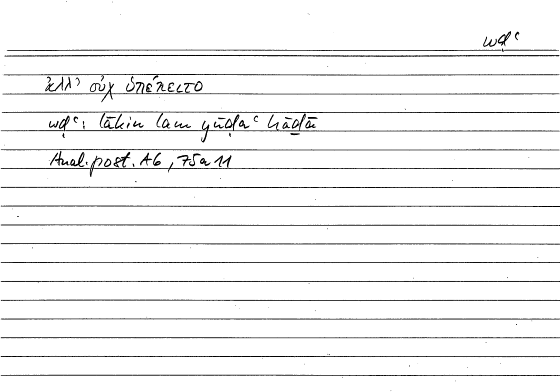 wḍʿ
ἀλλ' οὐχ ὑπέκειτο
wḍʿ: lākin lam yūḍaʿ hāḏā
Anal. post. A6, 75a11